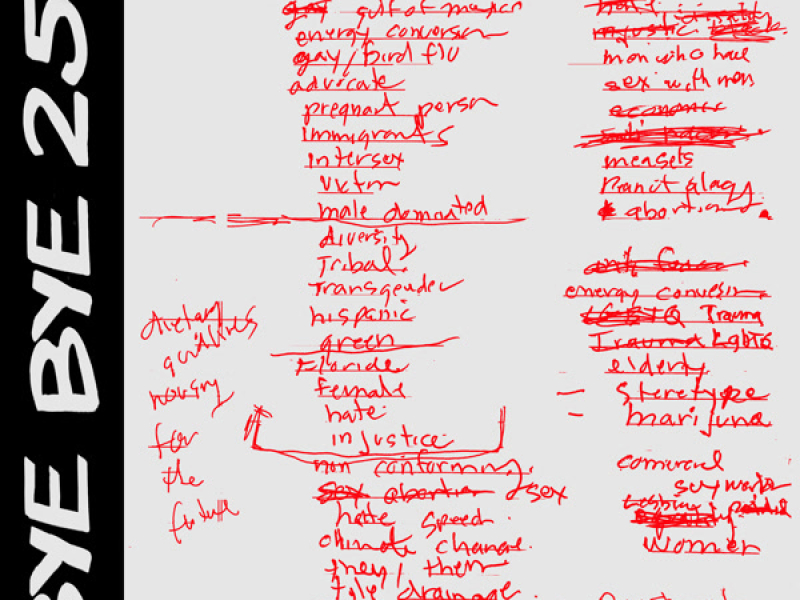 BYE BYE 25
gulf of mexico
energy conversion
gay/bird flu
advocate
pregnant person
immigrants
intersex
victm
male domnated
diversity
Tribal
Transgender
hispanic
green
Floride
female
hate
injustice
non conforming
sex abortion sex
hate speech
climate change
they/them
tyle drainage
dietary
guidlines
housing
for
the
future
men who have
sex with men
economic
measels
abortion
energy conversin
LGBTQ Trauma
Trauma LGBTQ
elderly
= steretype
= marijuna
comercial
sex worker
women